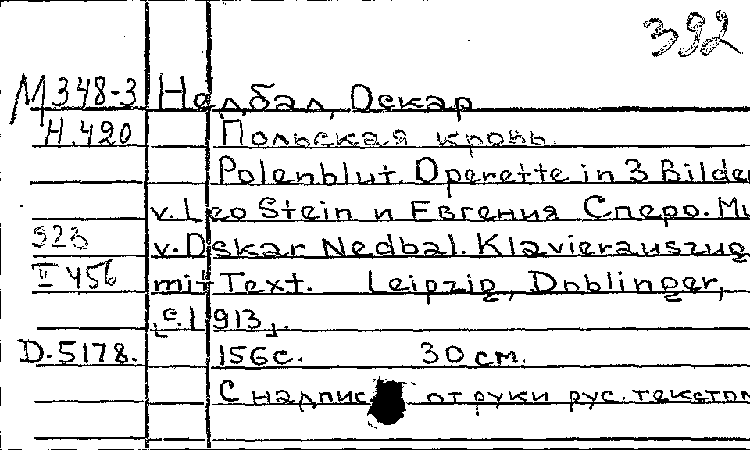 392
М348-3 Недбал, Оскар
Н.420 Польская кровь.
Polenblut. Operette in 3 Bilde
v. Leo Stein и Евгения Сперо. Mu
523 v. Oskar Nedbal. Klavierauszug
II 456 mit Text. Leipzig, Doblinger,
[c.1913].
D.5178. 156с. 30 см.
С надпис от руки рус. текстом